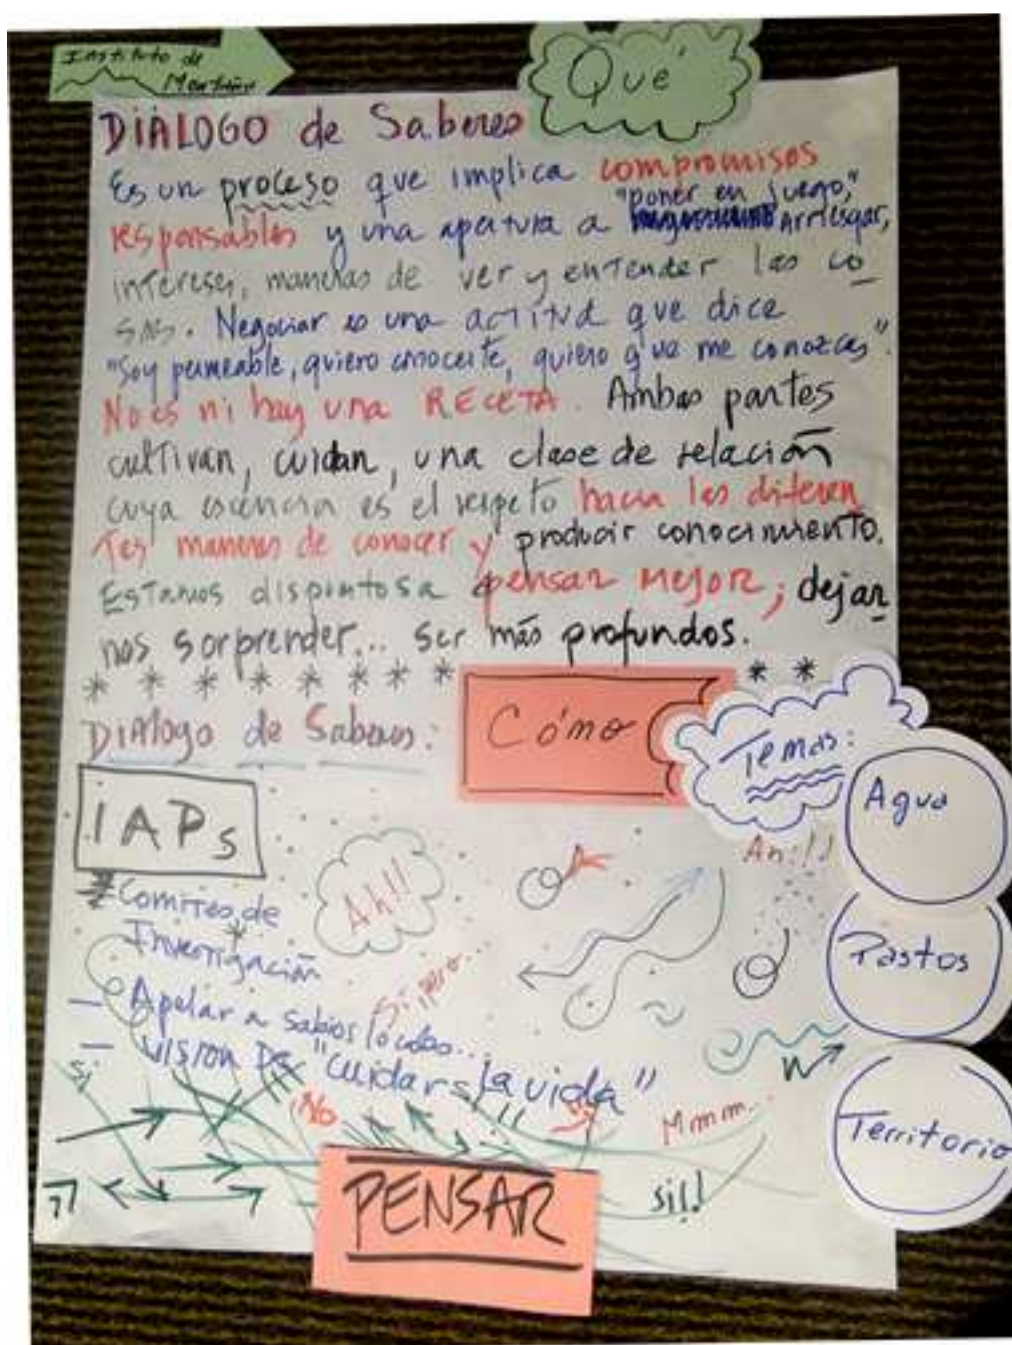 Instituto de
Montaña
Qué
DIALOGO de Saberes
Es un proceso que implica compromisos
"poner en juego,"
responsables y una apertura a Arriesgar,
intereses, maneras de ver y entender las co
sas. Negociar es una actitud que dice
"Soy permeable, quiero conocerte, quiero que me conozcas".
No es ni hay una RECETA. Ambas partes
cultivan, cuidan, una clase de relación
cuya esencia es el respeto hacia las diferen
tes maneras de conocer y producir conocimiento.
Estamos dispuestos a pensar mejor; dejar
nos sorprender... ser más profundos.
* * * * * * * * * *
Dialogo de Saberes:
Cómo
Temas:
Agua
IAPs
Ah!!
Ah!!!
* Comites de
Investigación
Pastos
Si, pero...
- Apelar a sabios locales...
- Vision de "cuidar la vida"
si
No
Mmm...
Territorio
??
PENSAR
si!!